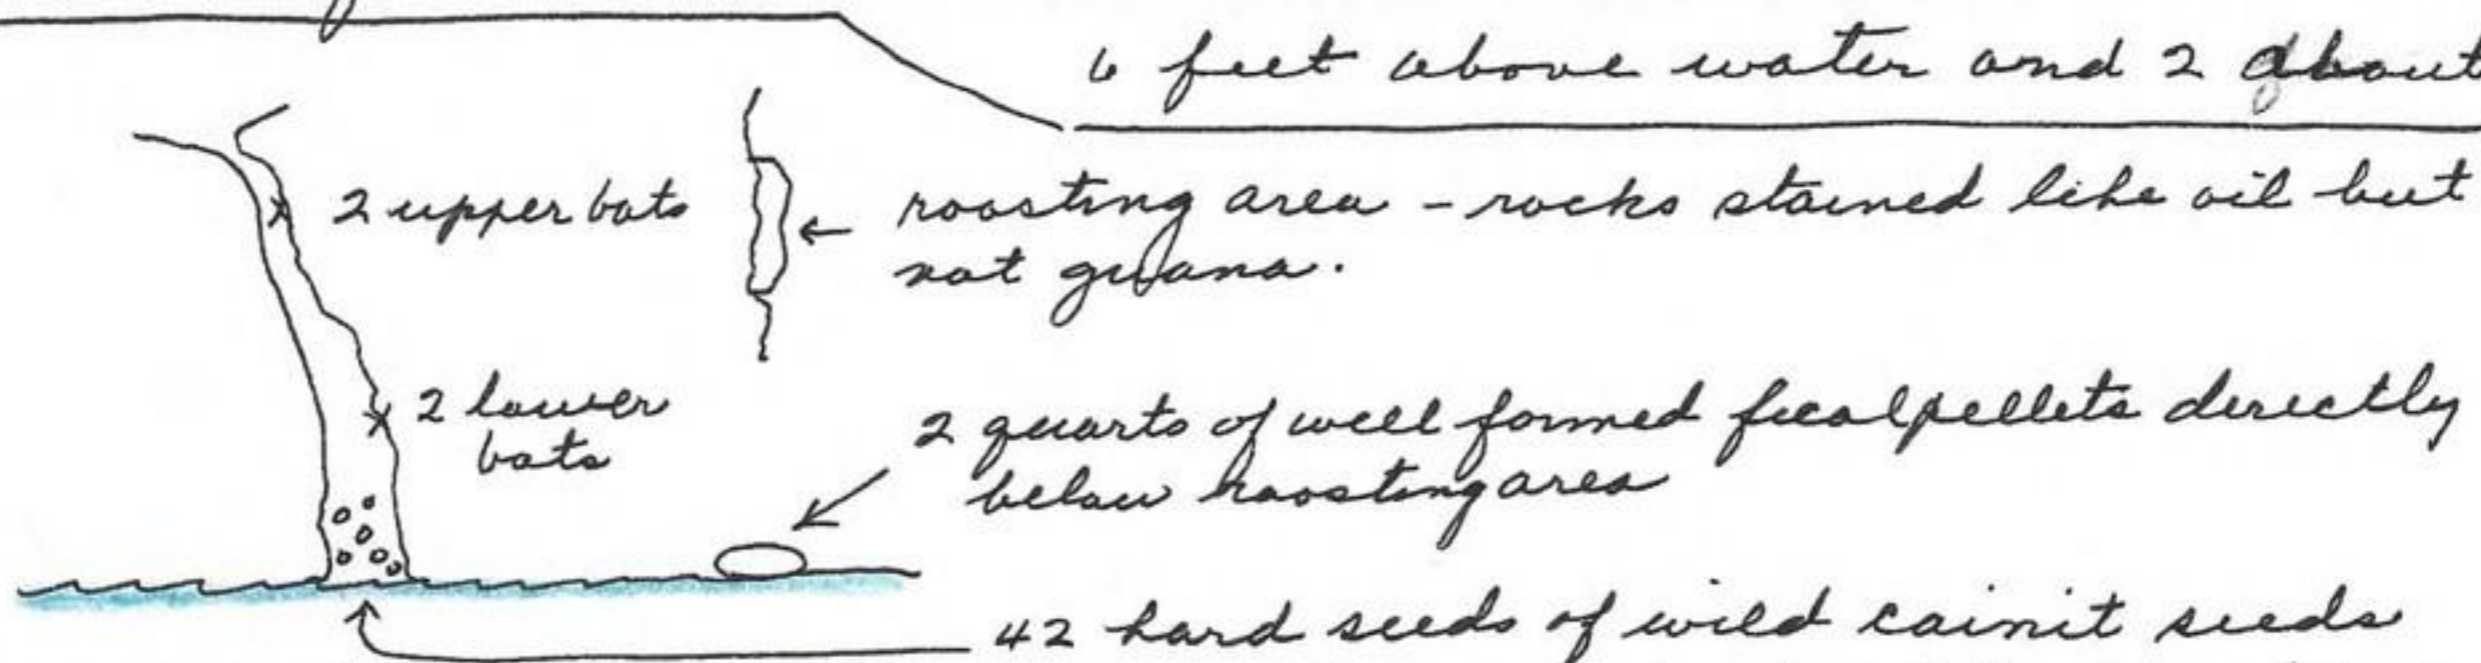 6 feet above water and 2 about
2 upper bats
roosting area - rocks stained like oil but
not guana.
2 lower
bats
2 quarts of well formed fecal pellets directly
below roosting area
42 hard seeds of wild cainit seeds